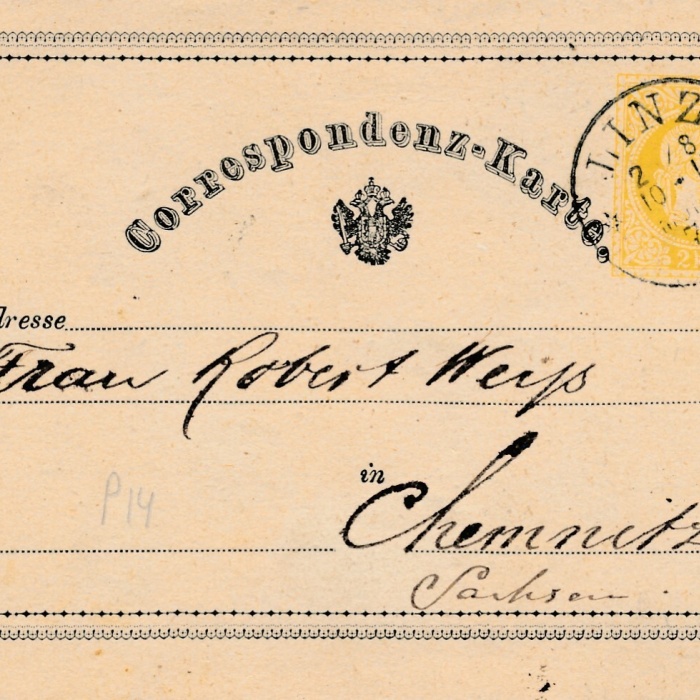 Correspondenz-Karte.
LINZ
18
2
10
2
dresse
Frau Robert Weyß
in
Chemnitz
Sachsen
P14